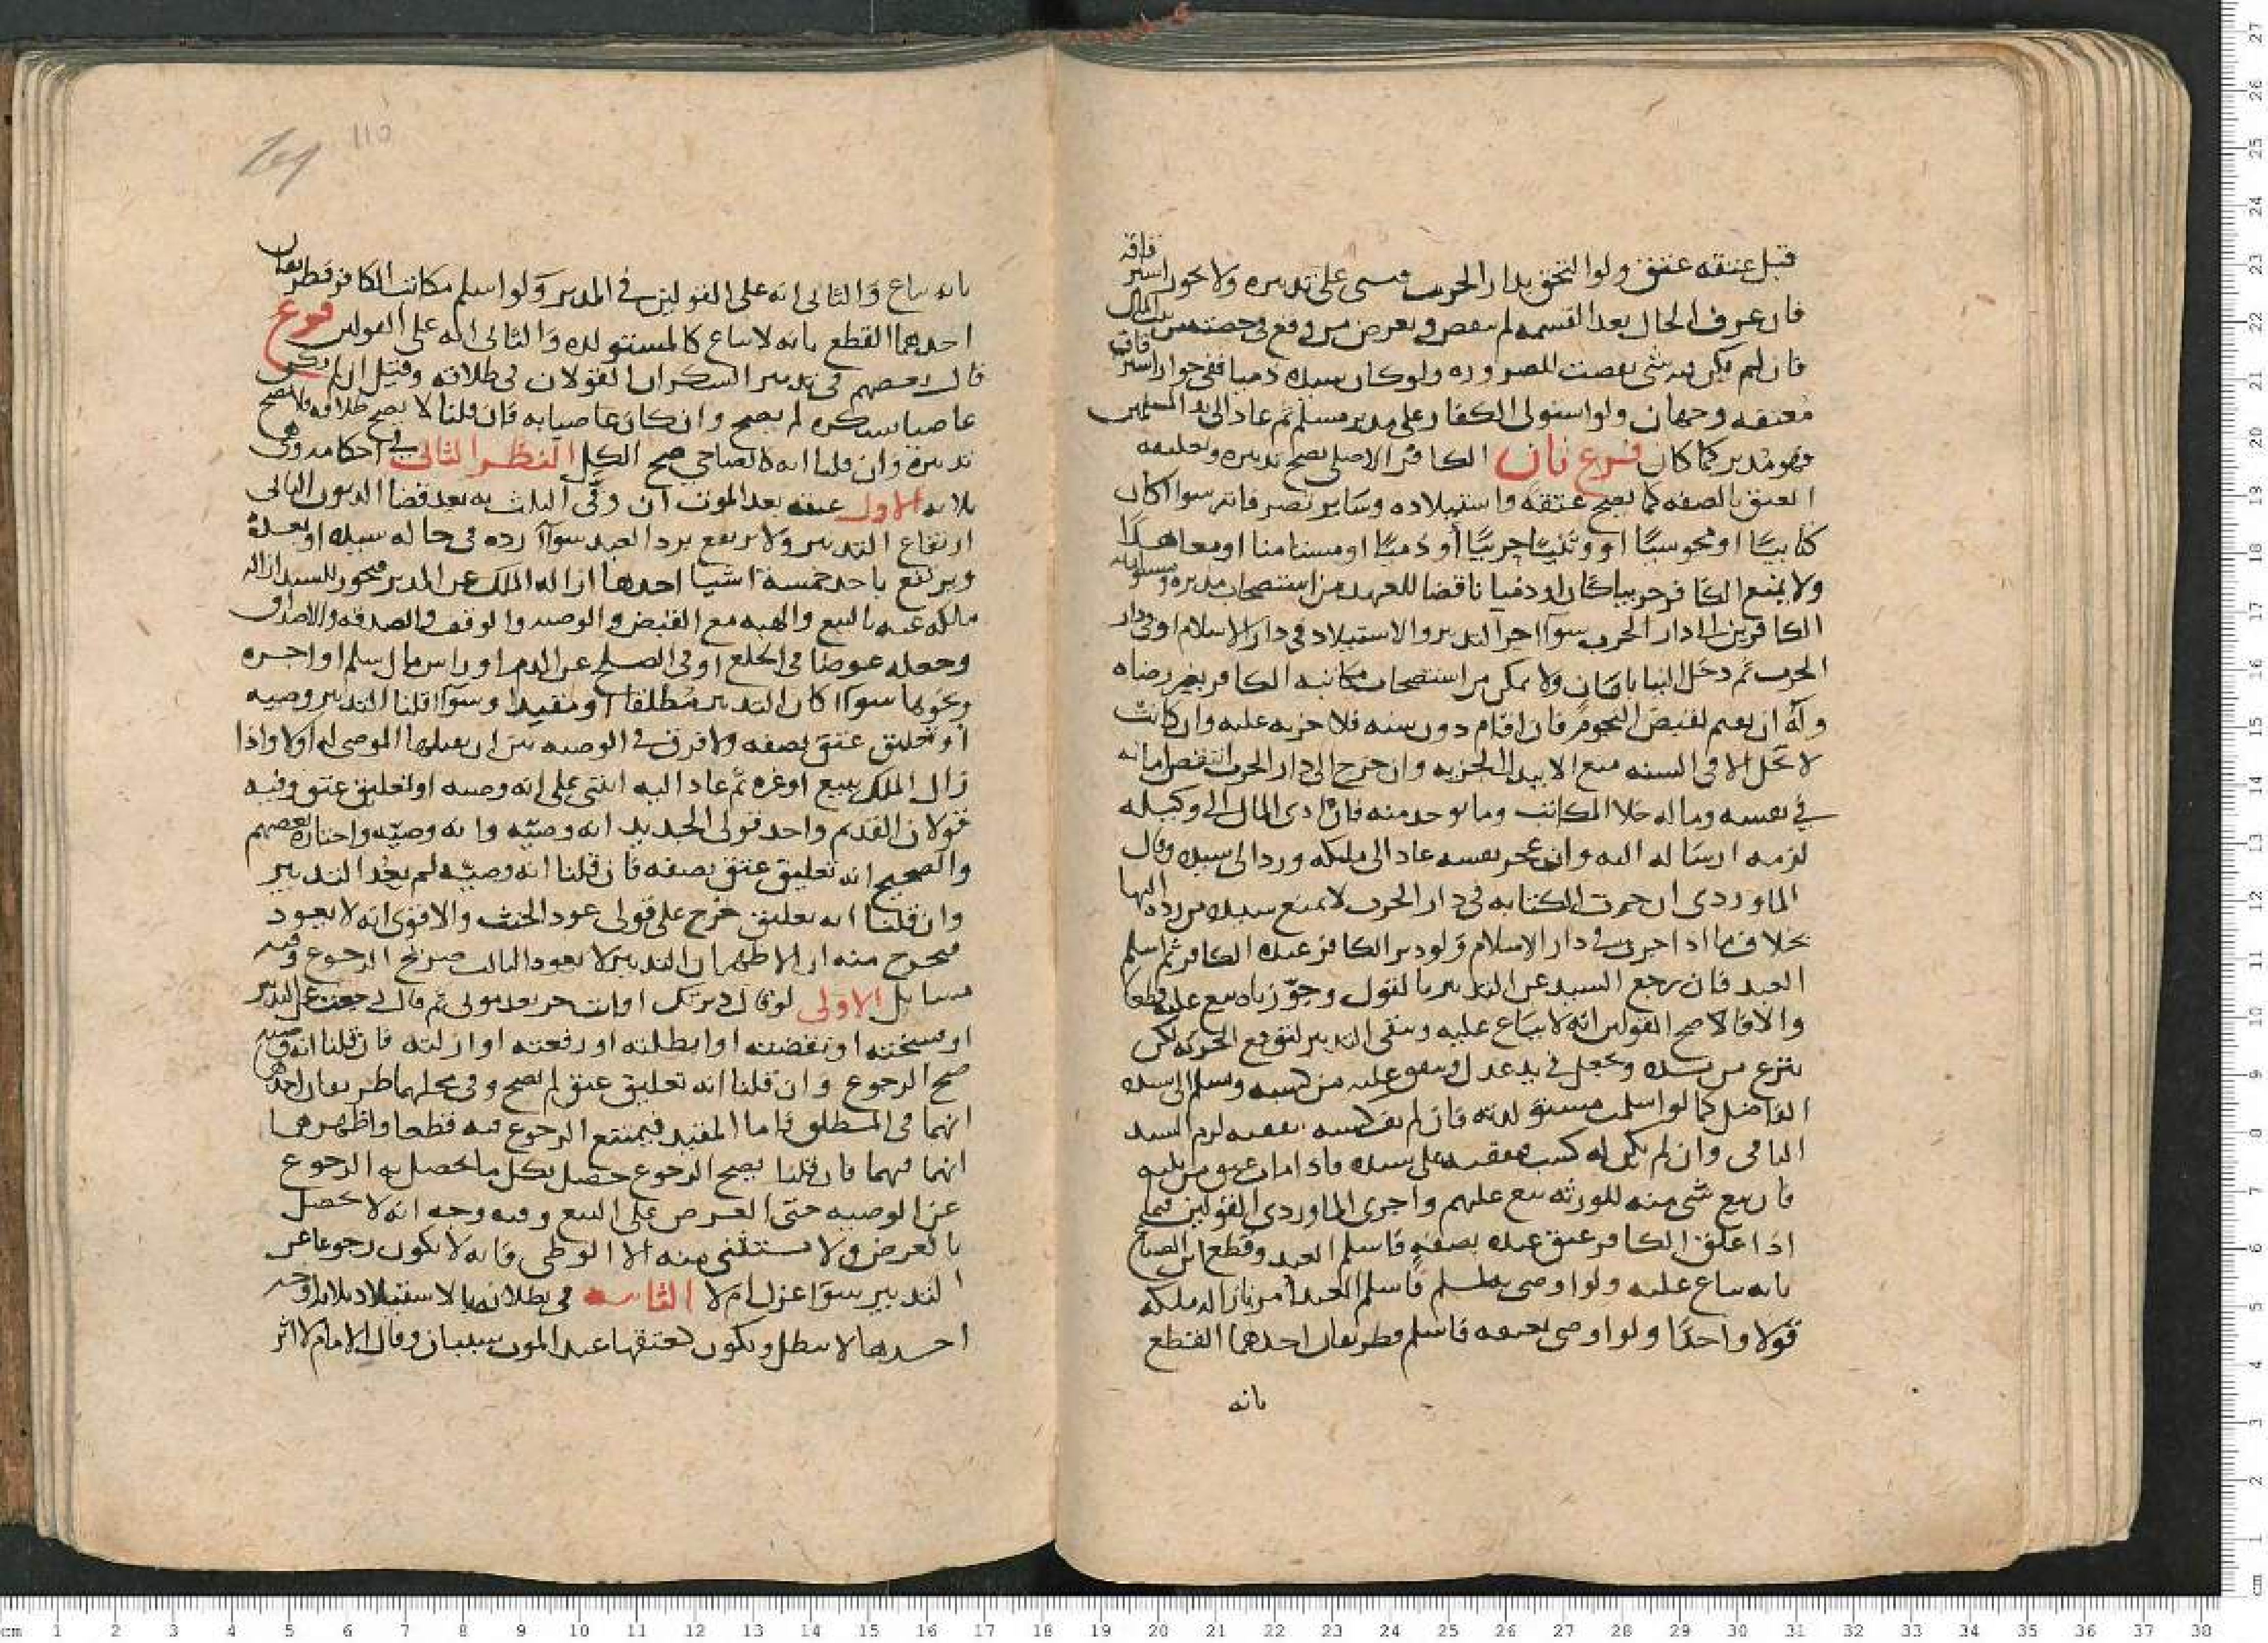 قبل عتقه عتق ولو التحق بدار الحرب فسبى على تدبيره ولا يجوز استرقاقه
فان عرف الحال بعد القسمه لم تنقض ويعوض من وقع في حصته من بيت المال
فان لم يكن فيه شى نقضت للضروره ولو كان سيده ذميا ففى جواز استرقاق
معتقه وجهان ولو استولى الكفار على مدبر مسلم ثم عاد الى يد المسلمين
فهو مدبر كما كان فرع ثان الكافر الاصلى يصح تدبيره وتعليقه
العتق بالصفه كما يصح عتقه واستيلاده وساير تصرفاته سوا اكان
كتابيًا او مجوسيًا او وثنيًا حربيًا أو ذميًا او مستامنا او معاهدًا
ولا يمنع الكافر حربيا كان او ذميا ناقضا للعهد من استصحاب مدبره ومستولدته
الكافرين الى دار الحرب سوآ اجرا التدبير والاستيلاد في دار الاسلام او في دار
الحرب ثم دخل الينا بامان ولا يمكن من استصحاب مكاتبه الكافر بغير رضاه
وله ان يقيم لقبض النجوم فان اقام دون سنه فلا جزيه عليه وان كانت
لا تحل الا في السنه منع الا ببذل الجزيه وان خرج الى دار الحرب انتقض امانه
في نفسه وماله خلا المكاتب وما يوخذ منه فان ادى المال الى وكيله
لزمه ارساله اليه وان عجز نفسه عاد الى ملكه ورد الى سيده وقال
الماوردى ان جرت الكتابه في دار الحرب لا يمنع سيده من رده اليها
بخلاف ما اذا جرى في دار الاسلام ولو دبر الكافر عبده الكافر ثم اسلم
العبد فان رجع السيد عن التدبير بالقول وجوزناه بيع عليه قطعا
والا فالاصح القولين انه لا يباع عليه ويبقى التدبير لتوقع الحريه لكن
ينزع من يده ويجعل في يد عدل وينفق عليه من كسبه ويسلم الى سيده
الفاضل كما لو اسلمت مستولدته فان لم يف كسبه بنفقته لزم السيد
الباقى وان لم يكن له كسب فنفقته على سيده فاذا مات عتق من ثلثه
فان بقى شى منه للورثه بيع عليهم واجرى الماوردى القولين فيما
اذا علق الكافر عتق عبده بصفهٍ فاسلم العبد وقطع ابن الصباغ
بانه يباع عليه ولو اوصى بمسلم فاسلم العبد أمر بازالة ملكه
قولا واحدًا ولو اوصى بعتقه فاسلم فطريقان احدهما القطع
بانه
بانه يباع والثانى انه على القولين في المدبر ولو اسلم مكاتب الكافر فطريقان
احدهما القطع بانه لا يباع كالمستولده والثانى انه على القولين فرع
قال بعضهم في تدبير السكران القولان في طلاقه وقيل ان لم يكن
عاصيا بسكره لم يصح وان كان عاصيا به فان قلنا لا يصح طلاقه فلا يصح
تدبيره وان قلنا انه كالصاحي صح الكل النظر الثانى في احكامه وهى
ثلاثه الاول عتقه بعد الموت ان وفى الثلث به بعد قضا الديون الثانى
ارتفاع التدبير ولا يرتفع برد العبد سوآ رده في حياة سيده او بعده
ويرتفع باحد خمسة اشيا احدها ازاله الملك عن المدبر فيجوز للسيد ازالة
ملكه عنه بالبيع والهبه مع القبض والوصيه والوقف والصدقه والاصداق
وجعله عوضا في الخلع او في الصلح عن الدم او راس مال سلم او اجره
ونحوها سوآ كان التدبير مطلقا او مقيدا وسوآ قلنا التدبير وصيه
أو تعليق عتق بصفه ولا فرق في الوصيه بين ان يقبلها الموصى له اولا واذا
زال الملك ببيع او غيره ثم عاد اليه انبنى على انه وصيه او تعليق عتق وفيه
قولان القديم واحد قولى الجديد انه وصيّه وانه وصيّه واختاره بعضهم
والصحيح انه تعليق عتق بصفه فان قلنا انه وصيّه لم يعد التدبير
وان قلنا انه تعليق خرج على قولى عود الحنث والاقوى انه لا يعود
فيخرج منه ان الاظهر ان التدبير لا يعود الثالث صريح الرجوع وفيه
مسايل الاولى لو قال دبرتك او انت حر بعد موتى ثم قال رجعت عن التدبير
او فسخته او نقضته او ابطلته او رفعته او ازلته فان قلنا انه وصيه
صح الرجوع وان قلنا انه تعليق عتق لم يصح وفي محلهما طريقان احدهما
انهما في المطلق فاما المقيد فيمتنع الرجوع فيه قطعا واظهرهما
انهما فيهما فان قلنا يصح الرجوع حصل بكل ما يحصل به الرجوع
عن الوصيه حتى العرض على البيع وفيه وجه انه لا يحصل
بالعرض ولا يستثنى منه الا الوطى فانه لا يكون رجوعا عن
التدبير سوآ عزل ام لا الثانيه في بطلانه بالاستيلاد ثلاثه اوجه
احدها لا يبطل ويكون لعتقها عند الموت سببان وقال الامام لا اثر